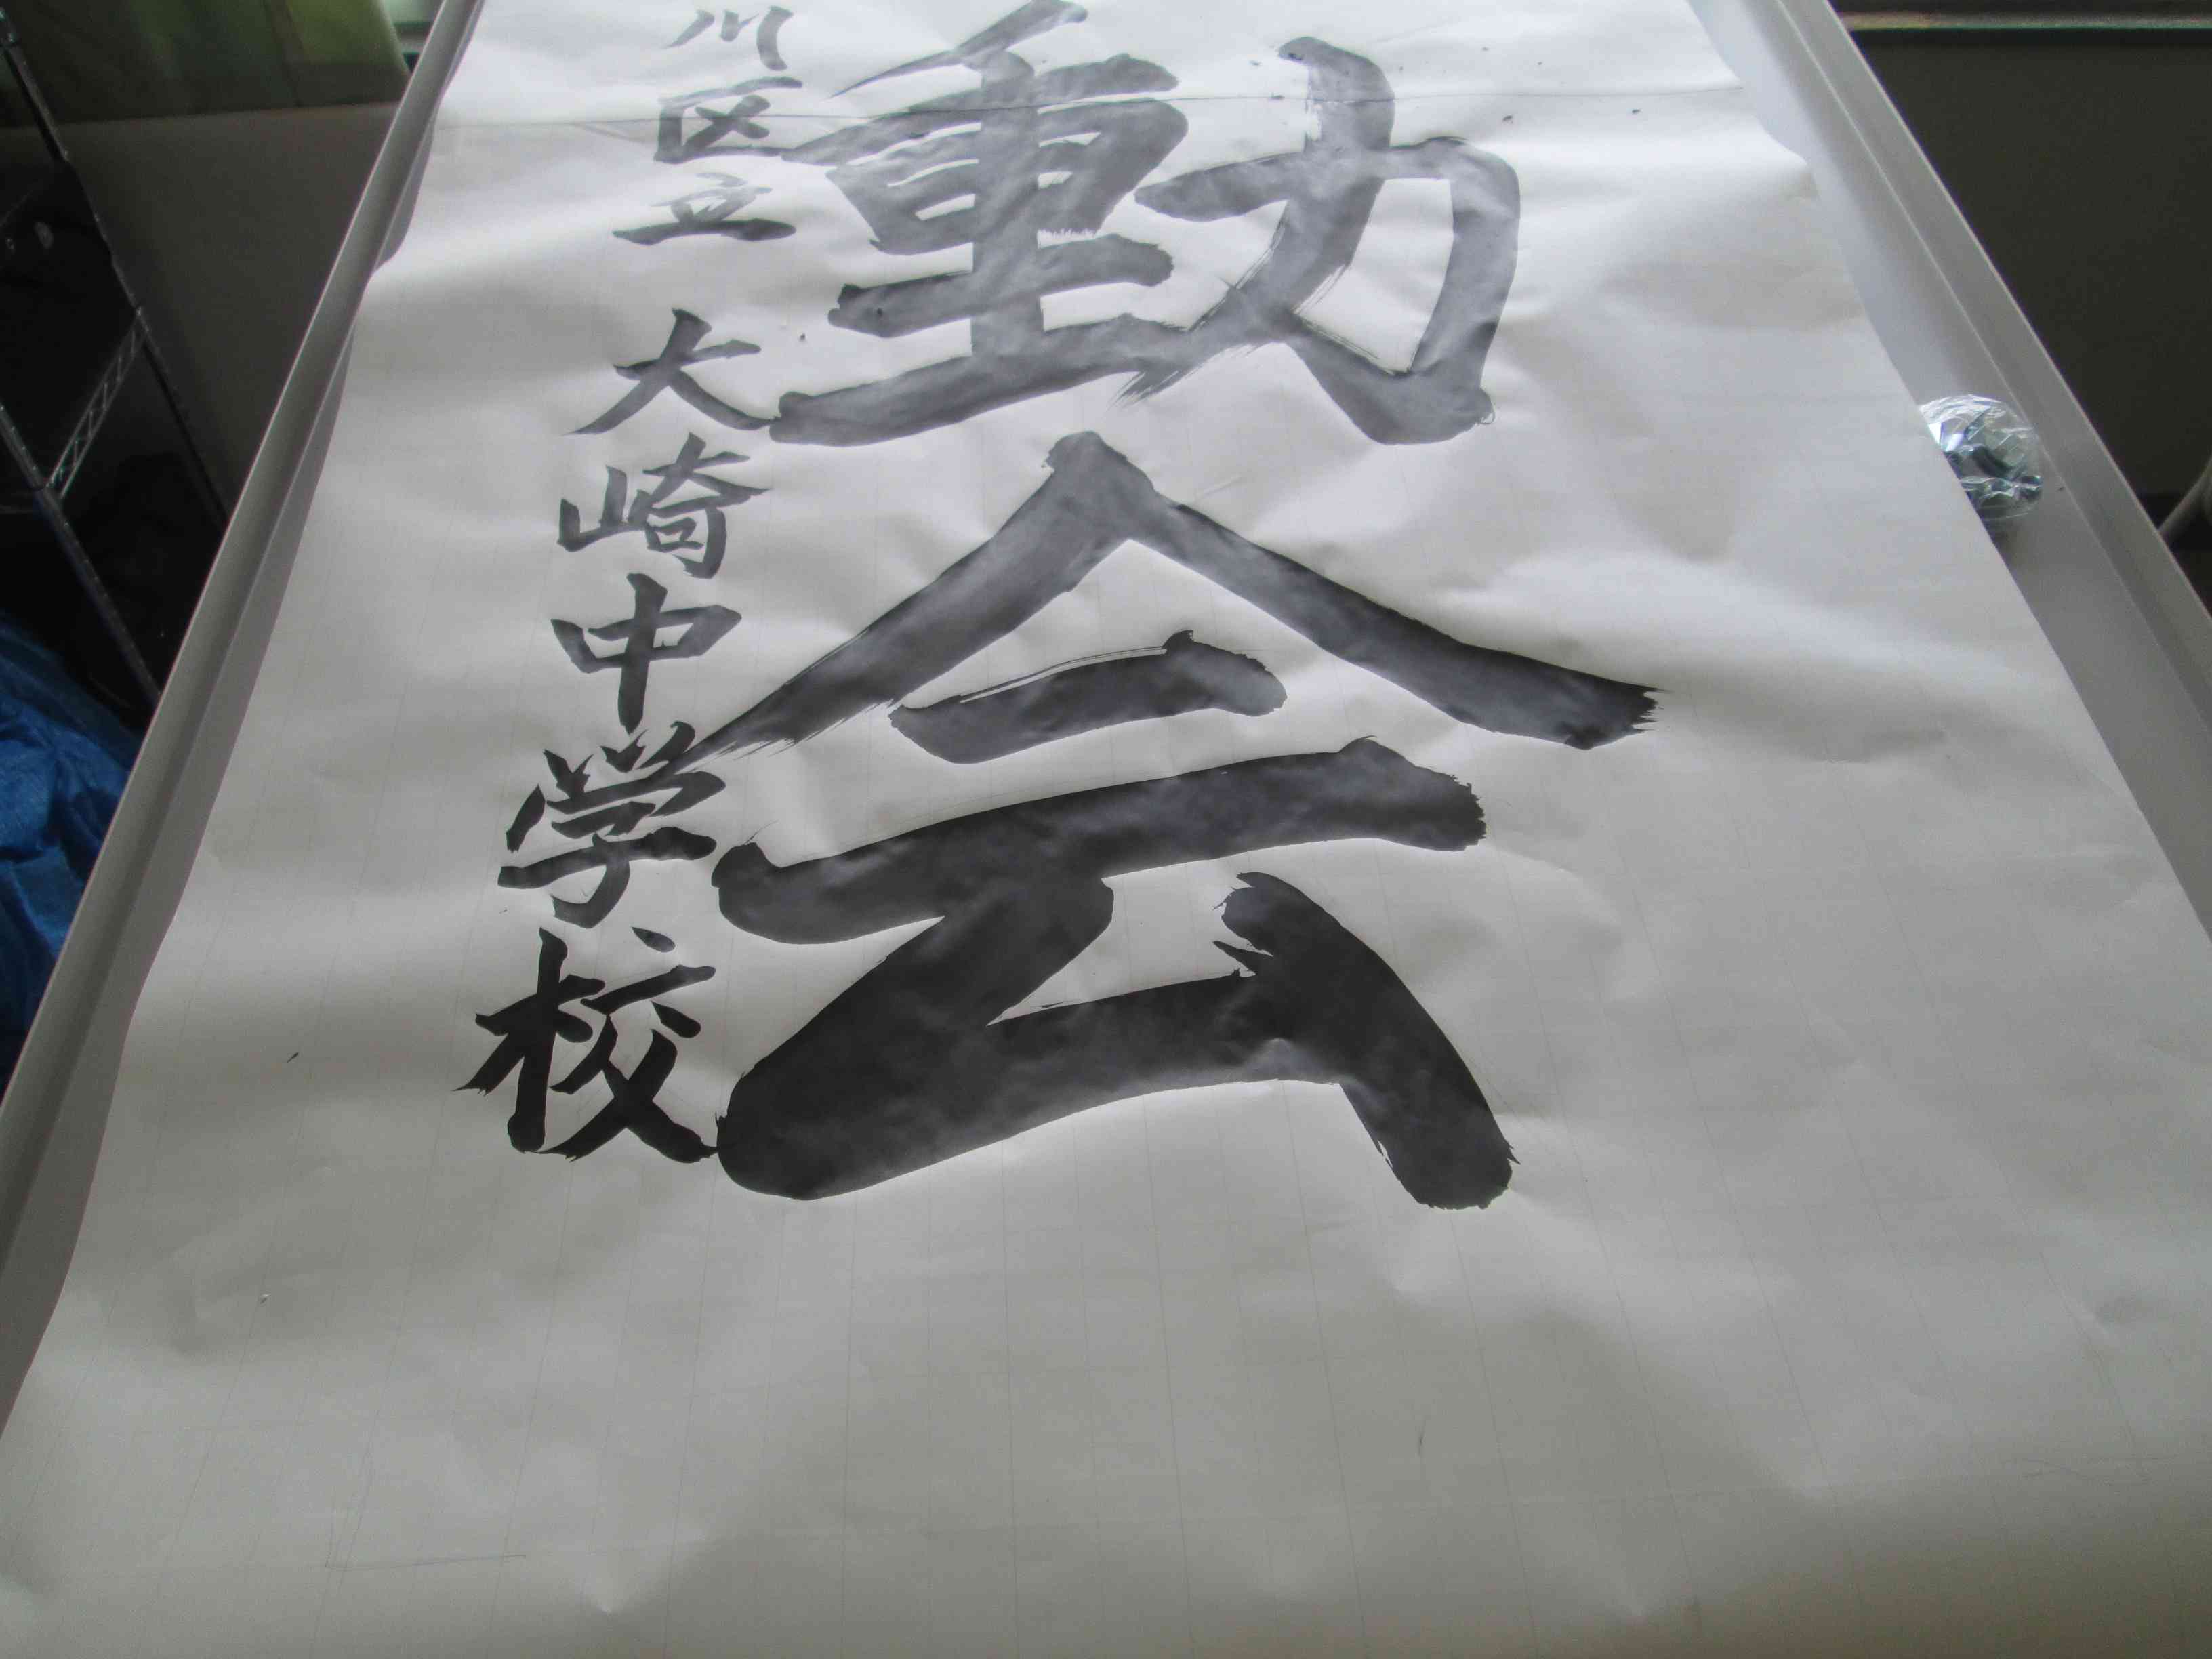 動会
川区立 大崎中学校